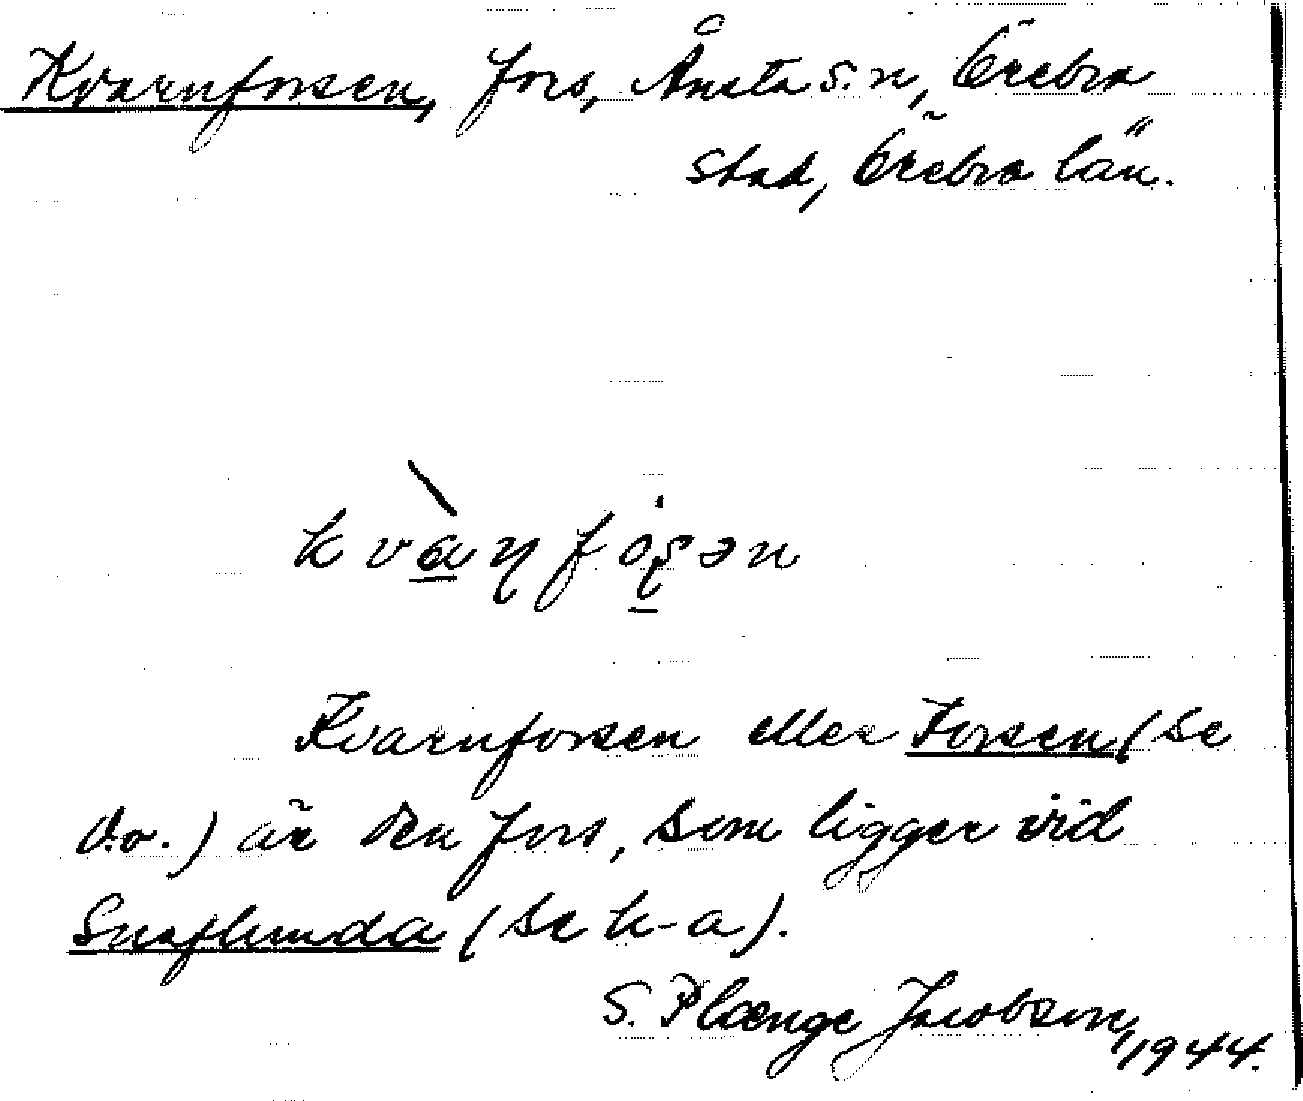 Kvarnforsen, fors, Ånsta s:n, Örebro
stad, Örebro län.
kvàɳfo̩ʂən
Kvarnforsen eller Forsen (se
d.o.) är den fors, som ligger vid
Snaflunda (se k-a).
S. Plænge Jacobson, 1944.